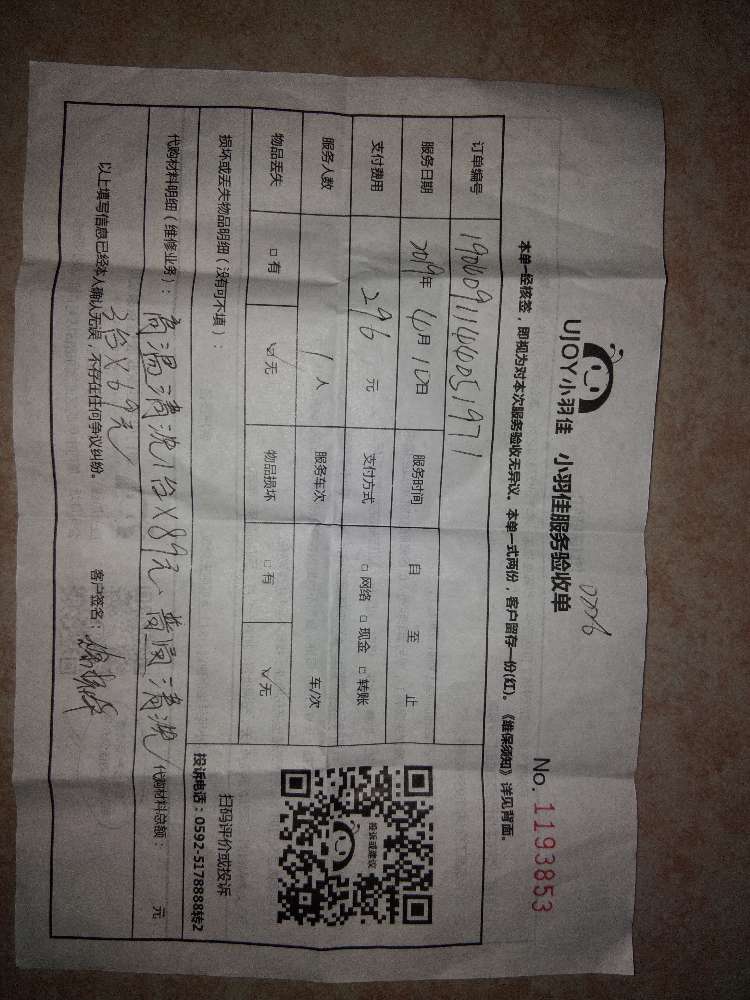 UJOY小羽佳 小羽佳服务验收单
No. 1193853
本单一经核签，即视为对本次服务验收无异议。本单一式两份，客户留存一份(红)。《维保须知》详见背面。
订单编号
服务日期 2019年 6月 10日 服务时间 自 至 止
支付费用 296 元 支付方式 □ 网络 □ 现金 □ 转账
服务人数 1 人 服务车次 车/次
物品丢失 □ 有 ☑ 无 物品损坏 □ 有 ☑ 无
投诉或建议
扫码评价或投诉
投诉电话：0592-5178888转2
损坏或丢失物品明细（没有可不填）：
代购材料明细（维修业务）：高温清洗1台X89元、普通清洗
代购材料总额： 元
3台X69元
以上填写信息已经本人确认无误，不存在任何争议纠纷。 客户签名：